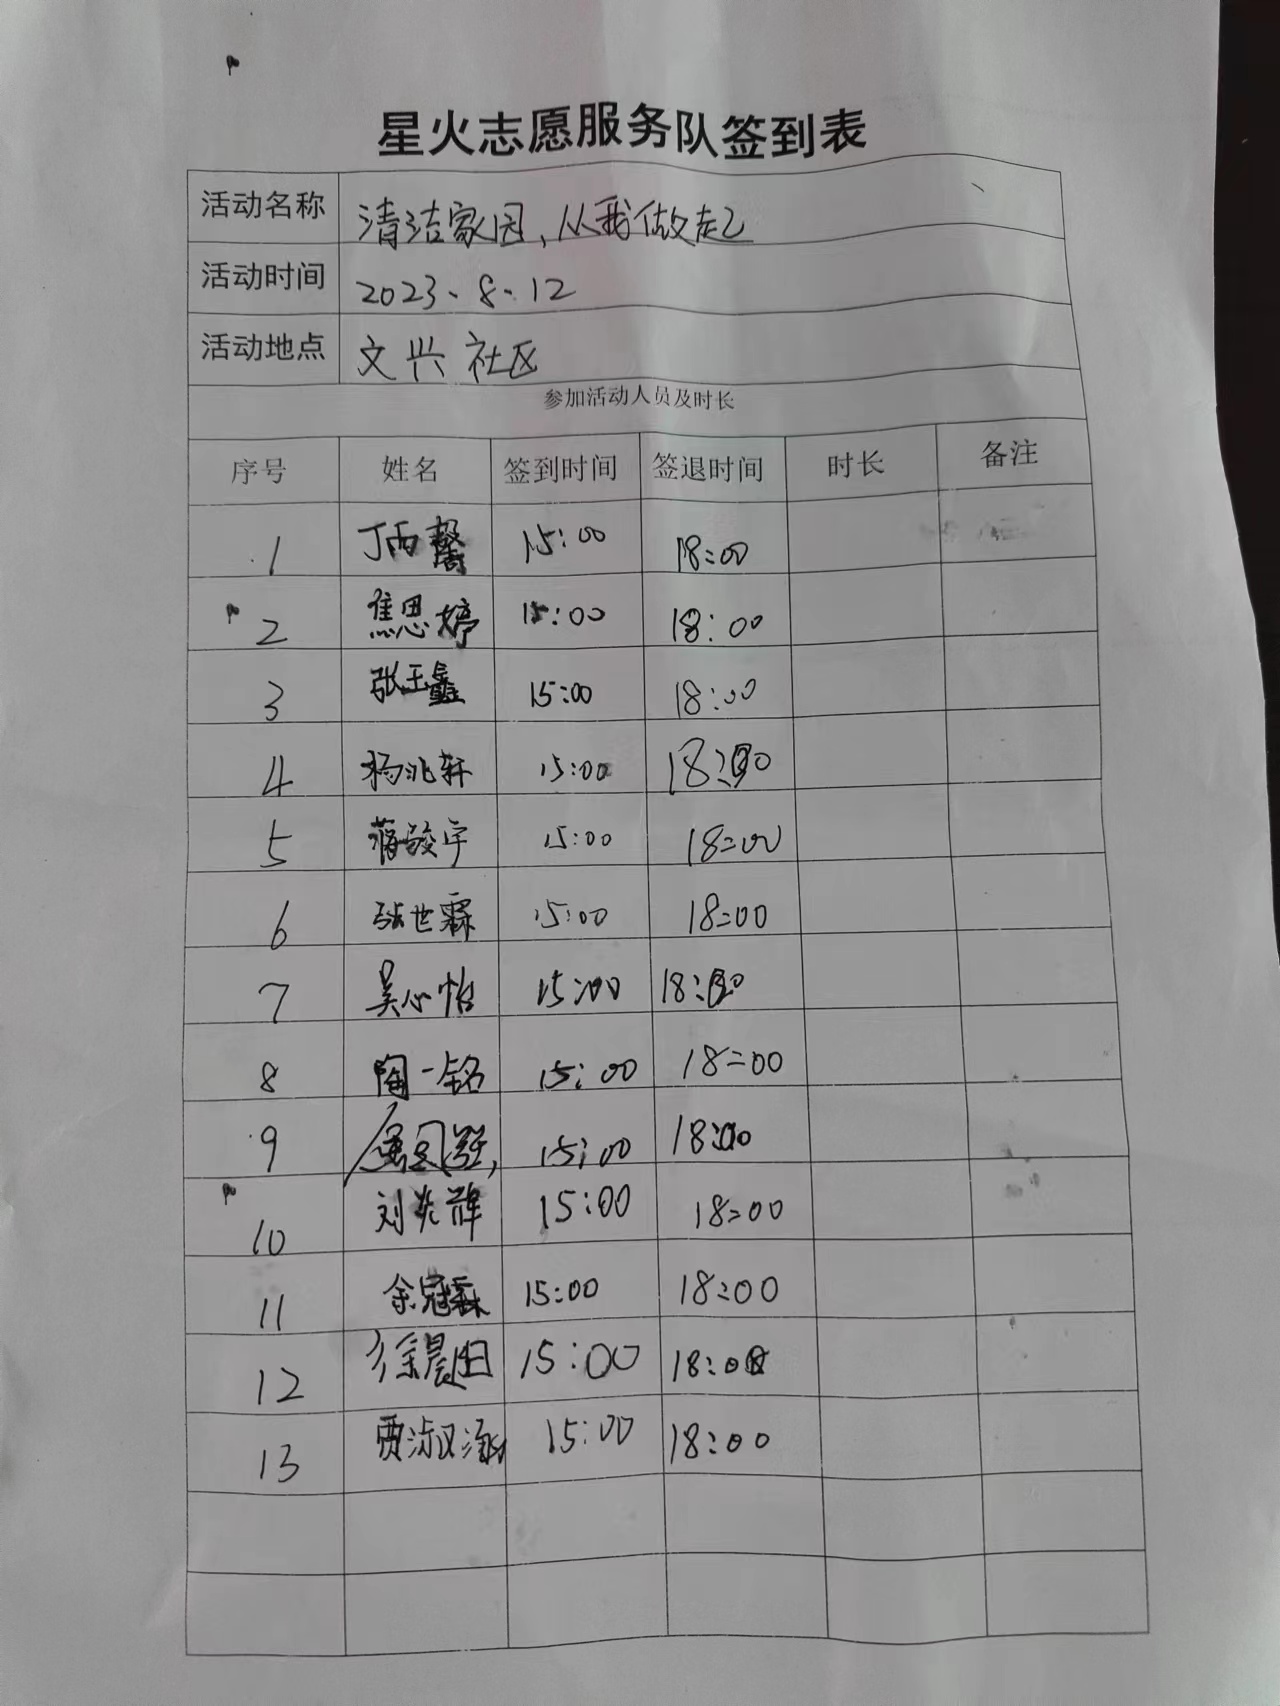 星火志愿服务队签到表
活动名称 清洁家园,从我做起
活动时间 2023.8.12
活动地点 文兴社区
参加活动人员及时长
序号 姓名 签到时间 签退时间 时长 备注
1 丁雨馨 15:00 18:00
2 焦思婷 15:00 18:00
3 张玉鑫 15:00 18:00
4 杨兆轩 15:00 18:00
5 蒋骏宇 15:00 18:00
6 张世霖 15:00 18:00
7 吴心怡 15:00 18:00
8 陶一铭 15:00 18:00
9 15:00 18:00
10 刘光辉 15:00 18:00
11 余冠霖 15:00 18:00
12 徐晨 15:00 18:00
13 贾淑涵 15:00 18:00